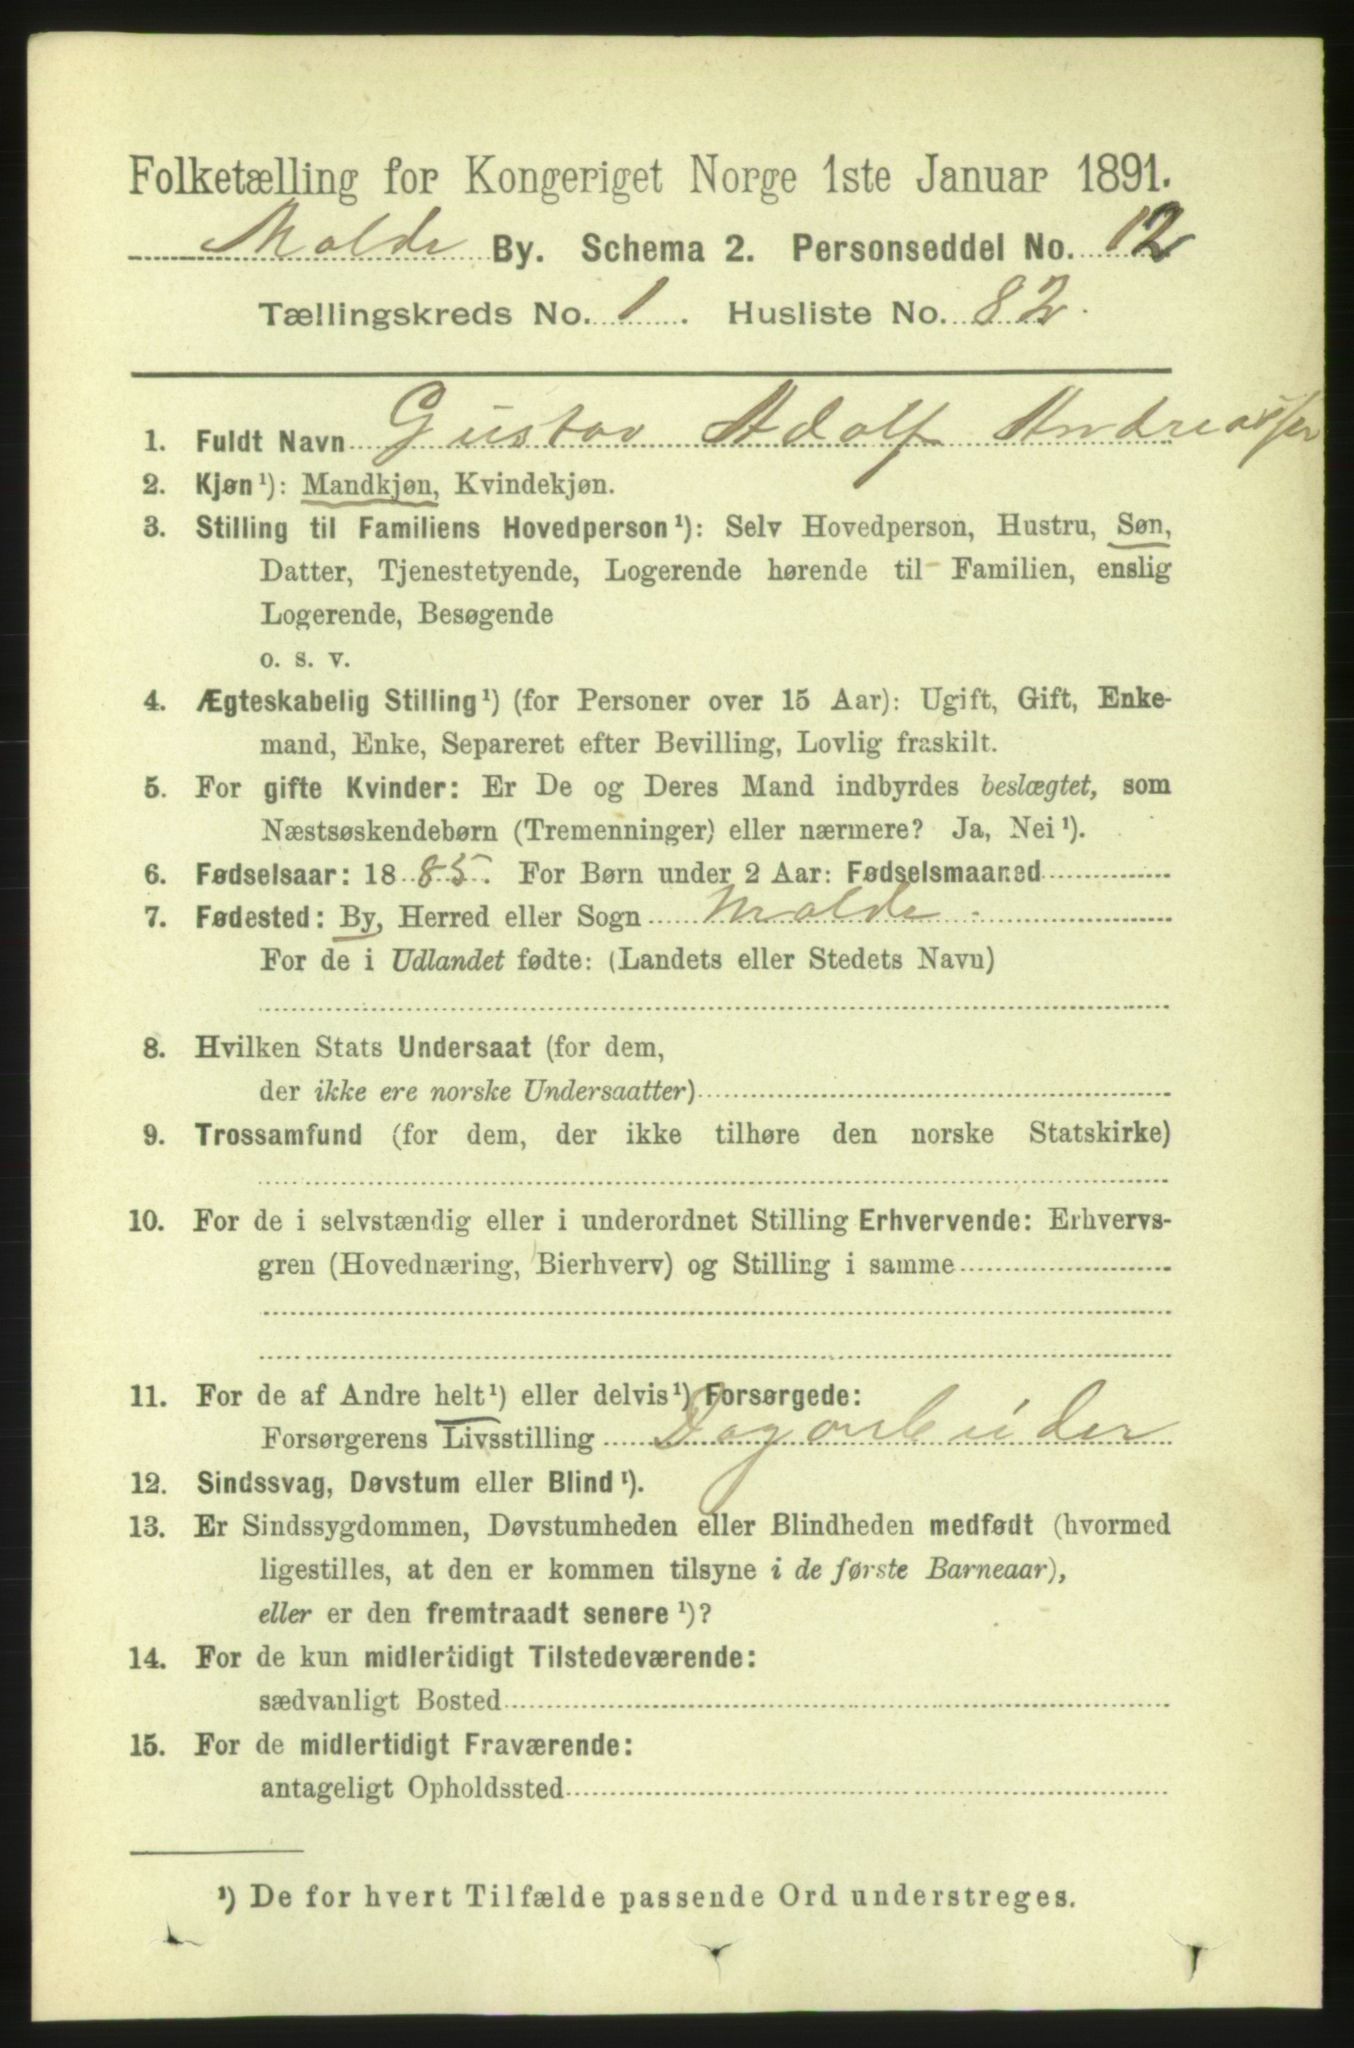 Folketælling for Kongeriget Norge 1ste Januar 1891.
Molde By. Schema 2. Personseddel No. 12
Tællingskreds No. 1. Husliste No. 82.
1. Fuldt Navn Gustav Adolf Andreassen
2. Kjøn¹): Mandkjøn, Kvindekjøn.
3. Stilling til Familiens Hovedperson¹): Selv Hovedperson, Hustru, Søn,
Datter, Tjenestetyende, Logerende hørende til Familien, enslig
Logerende, Besøgende
o. s. v.
4. Ægteskabelig Stilling¹) (for Personer over 15 Aar): Ugift, Gift, Enke-
mand, Enke, Separeret efter Bevilling, Lovlig fraskilt.
5. For gifte Kvinder: Er De og Deres Mand indbyrdes beslægtet, som
Næstsøskendebørn (Tremenninger) eller nærmere? Ja, Nei¹).
6. Fødselsaar: 1885. For Børn under 2 Aar: Fødselsmaaned
7. Fødested: By, Herred eller Sogn Molde.
For de i Udlandet fødte: (Landets eller Stedets Navn)
8. Hvilken Stats Undersaat (for dem,
der ikke ere norske Undersaatter)
9. Trossamfund (for dem, der ikke tilhøre den norske Statskirke)
10. For de i selvstændig eller i underordnet Stilling Erhvervende: Erhvervs-
gren (Hovednæring, Bierhverv) og Stilling i samme
11. For de af Andre helt¹) eller delvis¹) Forsørgede:
Forsørgerens Livsstilling Dagarbeider
12. Sindssvag, Døvstum eller Blind¹).
13. Er Sindssygdommen, Døvstumheden eller Blindheden medfødt (hvormed
ligestilles, at den er kommen tilsyne i de første Barneaar),
eller er den fremtraadt senere¹)?
14. For de kun midlertidigt Tilstedeværende:
sædvanligt Bosted
15. For de midlertidigt Fraværende:
antageligt Opholdssted
¹) De for hvert Tilfælde passende Ord understreges.